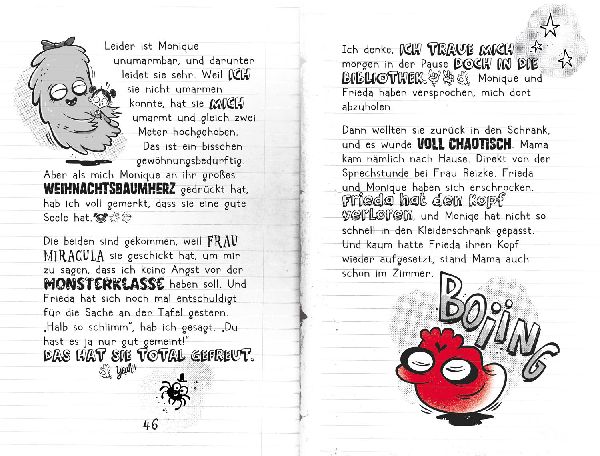 Leider ist Monique
unumarmbar, und darunter
leidet sie sehr. Weil ICH
sie nicht umarmen
konnte, hat sie MICH
umarmt und gleich zwei
Meter hochgehoben.
Das ist ein bisschen
gewöhnungsbedürftig.
Aber als mich Monique an ihr großes
WEIHNACHTSBAUMHERZ gedrückt hat,
hab ich voll gemerkt, dass sie eine gute
Seele hat.
Die beiden sind gekommen, weil FRAU
MIRACULA sie geschickt hat, um mir
zu sagen, dass ich keine Angst vor der
MONSTERKLASSE haben soll. Und
Frieda hat sich noch mal entschuldigt
für die Sache an der Tafel gestern.
„Halb so schlimm", hab ich gesagt. „Du
hast es ja nur gut gemeint!"
DAS HAT SIE TOTAL GEFREUT.
yeah!
46
Ich denke, ICH TRAUE MICH
morgen in der Pause DOCH IN DIE
BIBLIOTHEK. Monique und
Frieda haben versprochen, mich dort
abzuholen.
Dann wollten sie zurück in den Schrank,
und es wurde VOLL CHAOTISCH. Mama
kam nämlich nach Hause. Direkt von der
Sprechstunde bei Frau Reizke. Frieda
und Monique haben sich erschrocken.
Frieda hat den Kopf
verloren, und Moniqe hat nicht so
schnell in den Kleiderschrank gepasst.
Und kaum hatte Frieda ihren Kopf
wieder aufgesetzt, stand Mama auch
schon im Zimmer.
BOIING